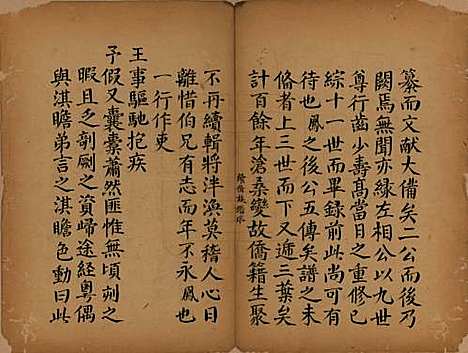 纂而文献大備矣二公而後乃
闕焉無聞亦緣左相公以九世
尊行齒少壽高當日之重修已
綜十一世而畢録前此尚可有
待也鳳之後公五傳矣譜之未
脩者上三世而下又遞三葉矣
計百餘年滄桑變故僑籍生聚
不再續輯將泮渙莫稽人心日
離惜伯兄有志而年不永鳳也
一行作吏
王事驅馳抱疾
子假又囊橐蕭然匪惟無頃刻之
暇且乏剞劂之資歸途經粵偶
與淇瞻弟言之淇瞻色動曰此